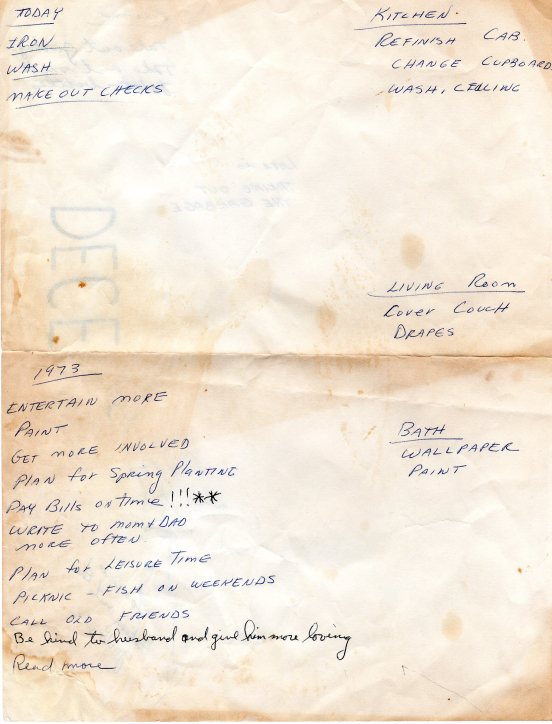 TODAY
IRON
WASH
MAKE OUT CHECKS
KITCHEN.
REFINISH CAB.
CHANGE CUPBOARD
WASH, CEILING
LOVE IS
TAKING OUT
THE GARBAGE
DECE
LIVING ROOM
COVER COUCH
DRAPES
1973
ENTERTAIN MORE
PAINT
GET MORE INVOLVED
PLAN for Spring Planting
PAY Bills on time !!!**
WRITE TO MOM & DAD
MORE OFTEN.
PLAN for LEISURE TIME
PICKNIC - FISH ON WEEKENDS
CALL OLD FRIENDS
Be kind to husband and give him more loving
Read more
BATH
WALLPAPER
PAINT